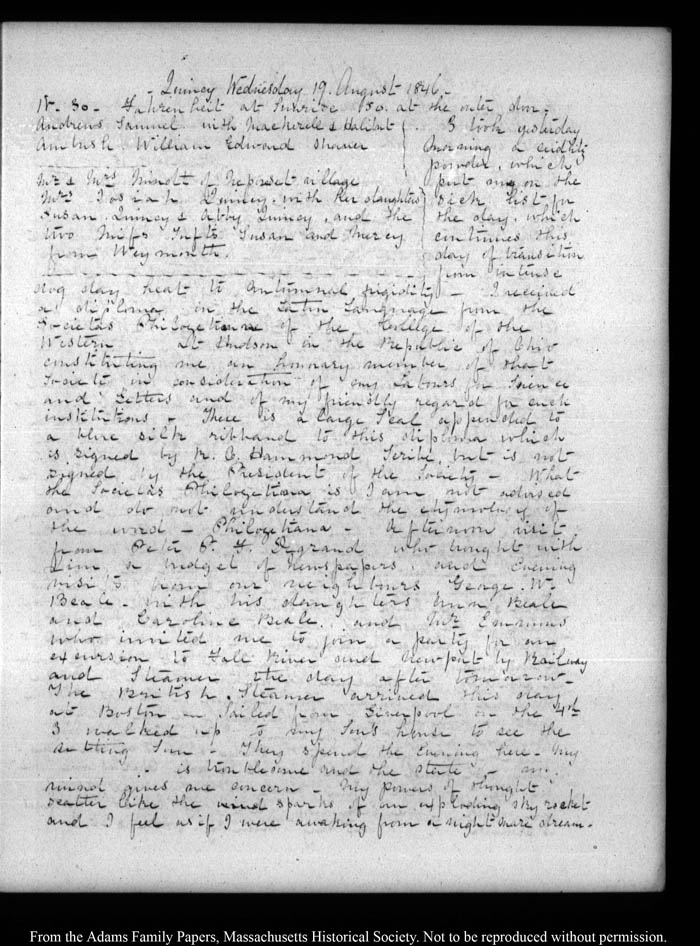 Quincy Wednesday 19. August 1846.-
IV. 30. Fahrenheit at Sunrise 50. at the outer door.
Andrews Samuel with Mackerel & Halibut
Ambush William Edward shower
I took yesterday
morning a seidlitz
powder, which
put me on the
sick list for
the day, which
continues this
day of transition
from intense
Mr & Mrs Minott of Neponset village
Mrs Josiah Quincy. with her daughters
Susan. Quincy & Abby Quincy, and the
two Miss Tufts Susan and Mercy
from Weymouth.
dog day heat to autumnal frigidity - I received
a diploma in the Latin Language from the
Societas Philozetiana of the College of the
Western at Hudson in the Republic of Ohio
constituting me an honorary member of that
Society in consideration of my Labours for Science
and Letters and of my friendly regard for such
institutions - There is a large Seal appended to
a blue silk ribband to this diploma which
is signed by K. C. Hammond Scribe, but is not
signed by the President of the Society - What
the Societas Philozetiana is I am not advised
and do not understand the etymology of
the word - Philozetiana - Afternoon visit
from Peter P. F. Degrand who brought with
him a budget of Newspapers, and evening
visits from our neighbours George. W.
Beale. with his daughters Ann Beale
and Caroline Beale, and Mr Emmons
who invited me to join a party for an
excursion to Fall River and Newport by Railway
and Steamer the day after tomorrow.
The British Steamer arrived this day
at Boston Sailed from Liverpool on the 4th
I walked up to my Son's house to see the
setting Sun - They spend the Evening here - My
is troublesome and the state my
mind gives me concern - My powers of thought
scatter like the sparks of an exploding sky rocket
and I feel as if I were awaking from a night mare dream.
From the Adams Family Papers, Massachusetts Historical Society. Not to be reproduced without permission.